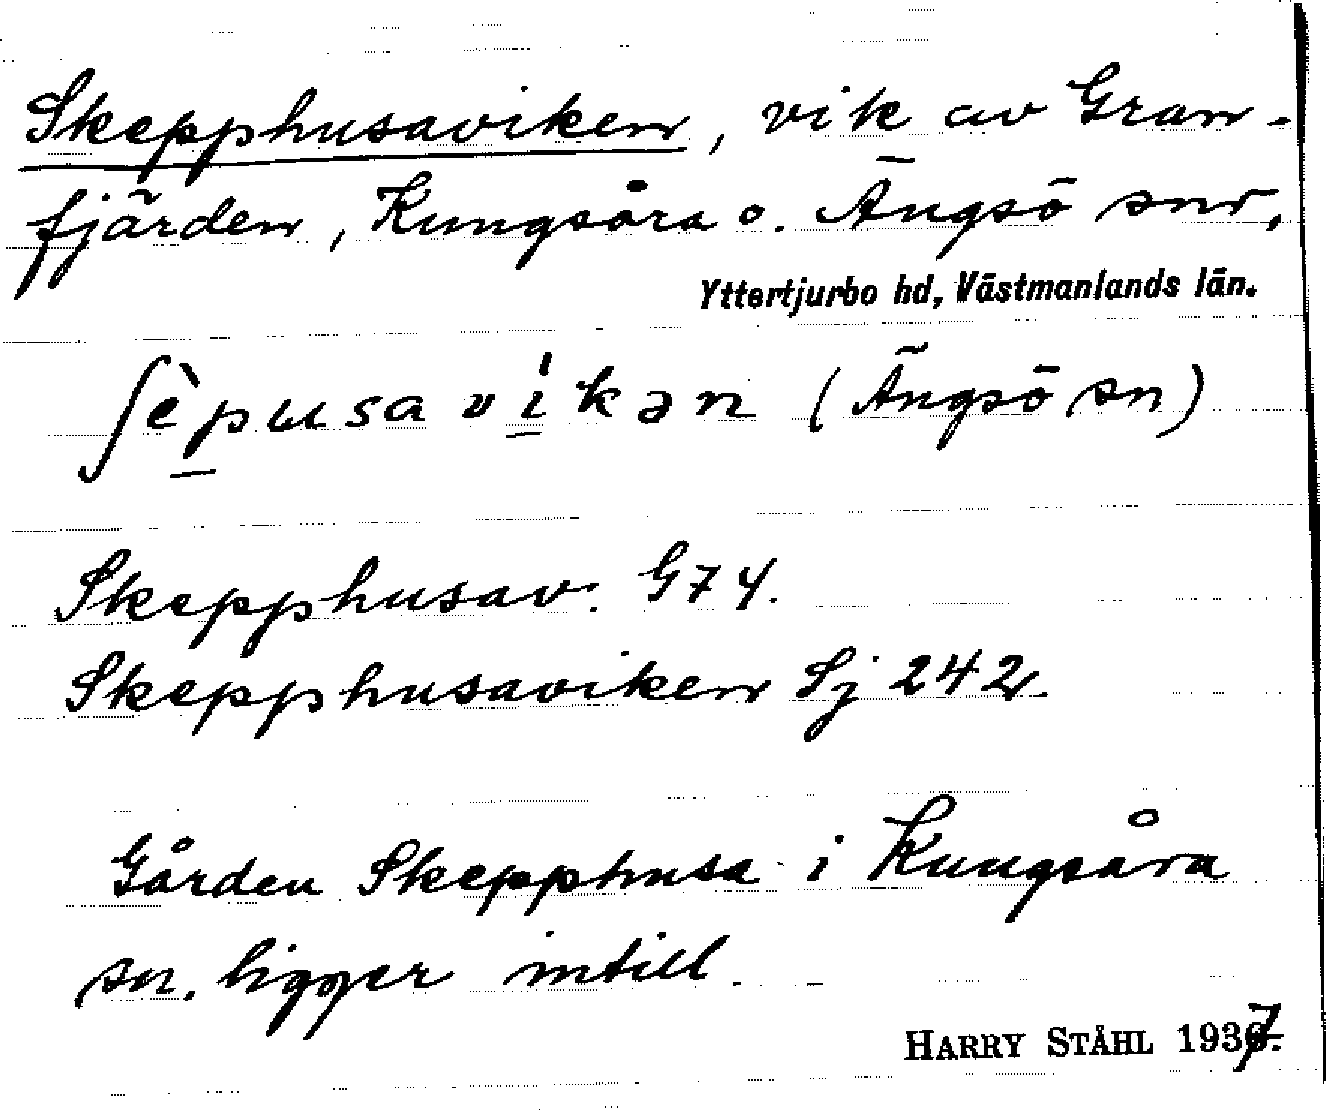 Skepphusaviken, vik av Gran-
fjärden, Kungsåra o. Ängsö snr,
Yttertjurbo hd, Västmanlands län.
ʃèpusavi̱kən (Ängsö sn)
Skepphusav. G74.
Skepphusaviken Sj 242
Gården Skepphusa i Kungsåra
sn. ligger intill.
HARRY STÅHL 1937.